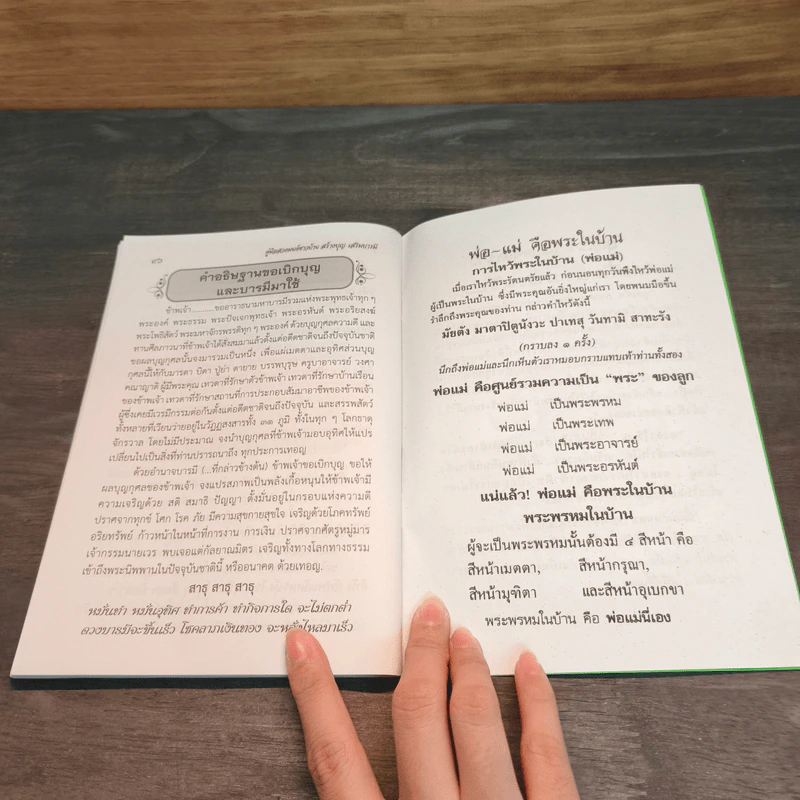 ๔๖
คู่มือสวดมนต์ชาวบ้าน สร้างบุญ เสริมบารมี
คำอธิษฐานขอเบิกบุญ
และบารมีมาใช้
ข้าพเจ้า..........ขออาราธนามหาบารมีรวมแห่งพระพุทธเจ้าทุก ๆ
พระองค์ พระธรรม พระปัจเจกพุทธเจ้า พระอรหันต์ พระอริยสงฆ์
พระโพธิสัตว์ พระมหาจักรพรรดิทุก ๆ พระองค์ ด้วยบุญกุศลความดี และ
ทานศีลภาวนาที่ข้าพเจ้าได้สั่งสมมาแล้วตั้งแต่อดีตชาติจนถึงปัจจุบันชาติ
ขอผลบุญกุศลนั้นจงมารวมเป็นหนึ่ง เพื่อแผ่เมตตาและอุทิศส่วนบุญ
กุศลนี้ให้กับมารดา บิดา ปู่ย่า ตายาย บรรพบุรุษ ครูบาอาจารย์ วงศา
คณาญาติ ผู้มีพระคุณ เทวดาที่รักษาตัวข้าพเจ้า เทวดาที่รักษาบ้านเรือน
ของข้าพเจ้า เทวดาที่รักษาสถานที่การประกอบสัมมาอาชีพของข้าพเจ้า
ผู้ซึ่งเคยมีเวรมีกรรมต่อกันตั้งแต่อดีตชาติจนถึงปัจจุบัน และสรรพสัตว์
ทั้งหลายที่เวียนว่ายอยู่ในวัฏฏสงสารทั้ง ๓๑ ภูมิ ทั้งในทุก ๆ โลกธาตุ
จักรวาล โดยไม่มีประมาณ จงนำบุญกุศลที่ข้าพเจ้ามอบอุทิศให้แปร
เปลี่ยนไปเป็นสิ่งที่ท่านปรารถนาถึง ทุกประการเทอญ
ด้วยอำนาจบารมี (...ที่กล่าวข้างต้น) ข้าพเจ้าขอเบิกบุญ ขอให้
ผลบุญกุศลของข้าพเจ้า จงแปรสภาพเป็นพลังเกื้อหนุนให้ข้าพเจ้ามี
ความเจริญด้วย สติ สมาธิ ปัญญา ตั้งมั่นอยู่ในกรอบแห่งความดี
ปราศจากทุกข์ โศก โรค ภัย มีความสุขกายสุขใจ เจริญด้วยโภคทรัพย์
อริยทรัพย์ ก้าวหน้าในหน้าที่การงาน การเงิน ปราศจากศัตรูหมู่มาร
เจ้ากรรมนายเวร พบเจอแต่กัลยาณมิตร เจริญทั้งทางโลกทางธรรม
เข้าถึงพระนิพพานในปัจจุบันชาตินี้ หรืออนาคต ด้วยเทอญ.
สาธุ สาธุ สาธุ
หมั่นทำ หมั่นอุทิศ ทำการค้า ทำกิจการใด จะไม่ตกต่ำ
ดวงบารมีจะขึ้นเร็ว โชคลาภเงินทอง จะหลั่งไหลมาเร็ว
พ่อ-แม่ คือพระในบ้าน
การไหว้พระในบ้าน (พ่อแม่)
เมื่อเราไหว้พระรัตนตรัยแล้ว ก่อนนอนทุกวันพึงไหว้พ่อแม่
ผู้เป็นพระในบ้าน ซึ่งมีพระคุณอันยิ่งใหญ่แก่เรา โดยพนมมือขึ้น
รำลึกถึงพระคุณของท่าน กล่าวคำไหว้ดังนี้
มัยตัง มาตาปิตูนังวะ ปาเทสุ วันทามิ สาทะรัง
(กราบลง ๑ ครั้ง)
นึกถึงพ่อแม่และนึกเห็นตัวเราหมอบกราบแทบเท้าท่านทั้งสอง
พ่อแม่ คือศูนย์รวมความเป็น “พระ” ของลูก
พ่อแม่ เป็นพระพรหม
พ่อแม่ เป็นพระเทพ
พ่อแม่ เป็นพระอาจารย์
พ่อแม่ เป็นพระอรหันต์
แน่แล้ว! พ่อแม่ คือพระในบ้าน
พระพรหมในบ้าน
ผู้จะเป็นพระพรหมนั้นต้องมี ๔ สีหน้า คือ
สีหน้าเมตตา, สีหน้ากรุณา,
สีหน้ามุฑิตา และสีหน้าอุเบกขา
พระพรหมในบ้าน คือ พ่อแม่นี่เอง